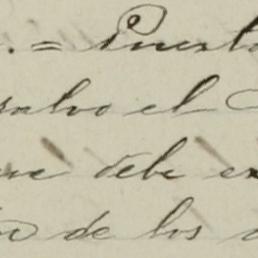 . = Puerto
salvo el
que debe
de los